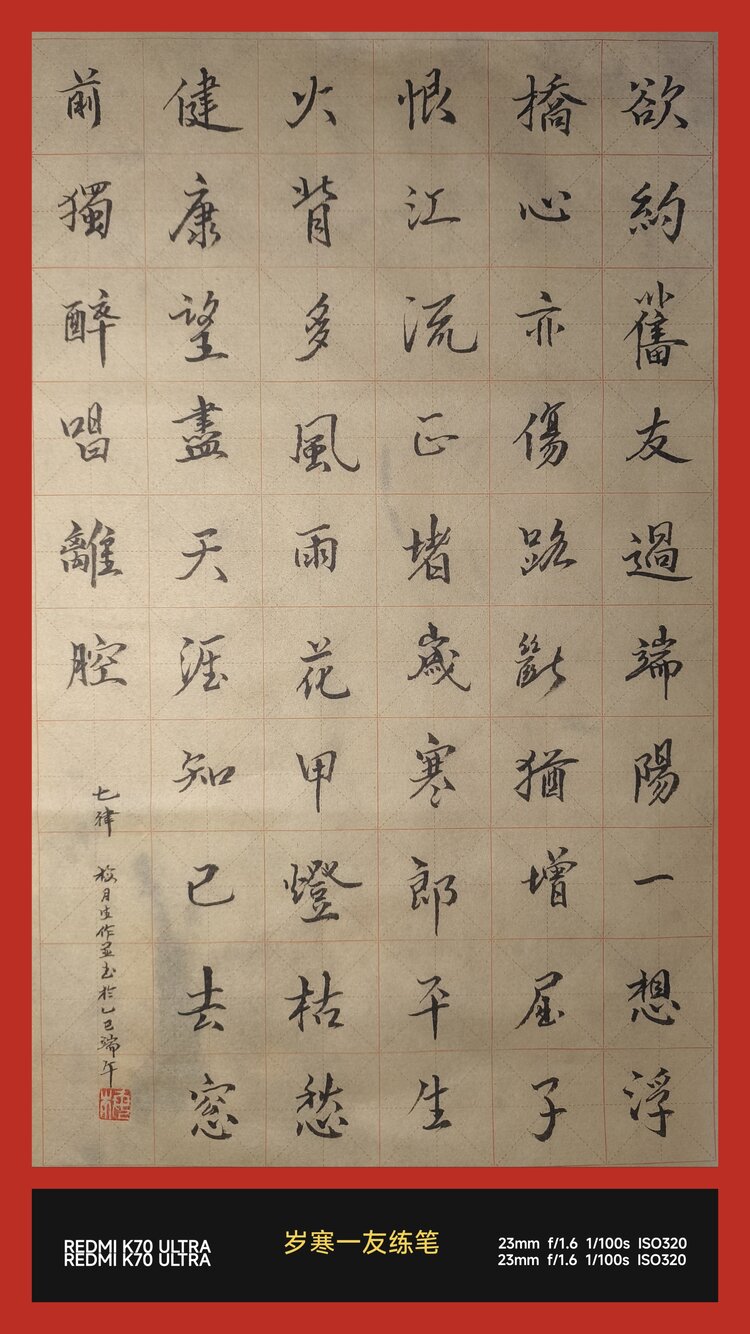 欲約舊友過端陽一想浮
橋心亦傷路斷猶增屈子
恨江流正堵歲寒郎平生
火背多風雨花甲燈枯愁
健康望盡天涯知已去窓
前獨醉唱離腔
七律
月生作並书於乙巳端午
REDMI K70 ULTRA
REDMI K70 ULTRA
岁寒一友练笔
23mm f/1.6 1/100s ISO320
23mm f/1.6 1/100s ISO320